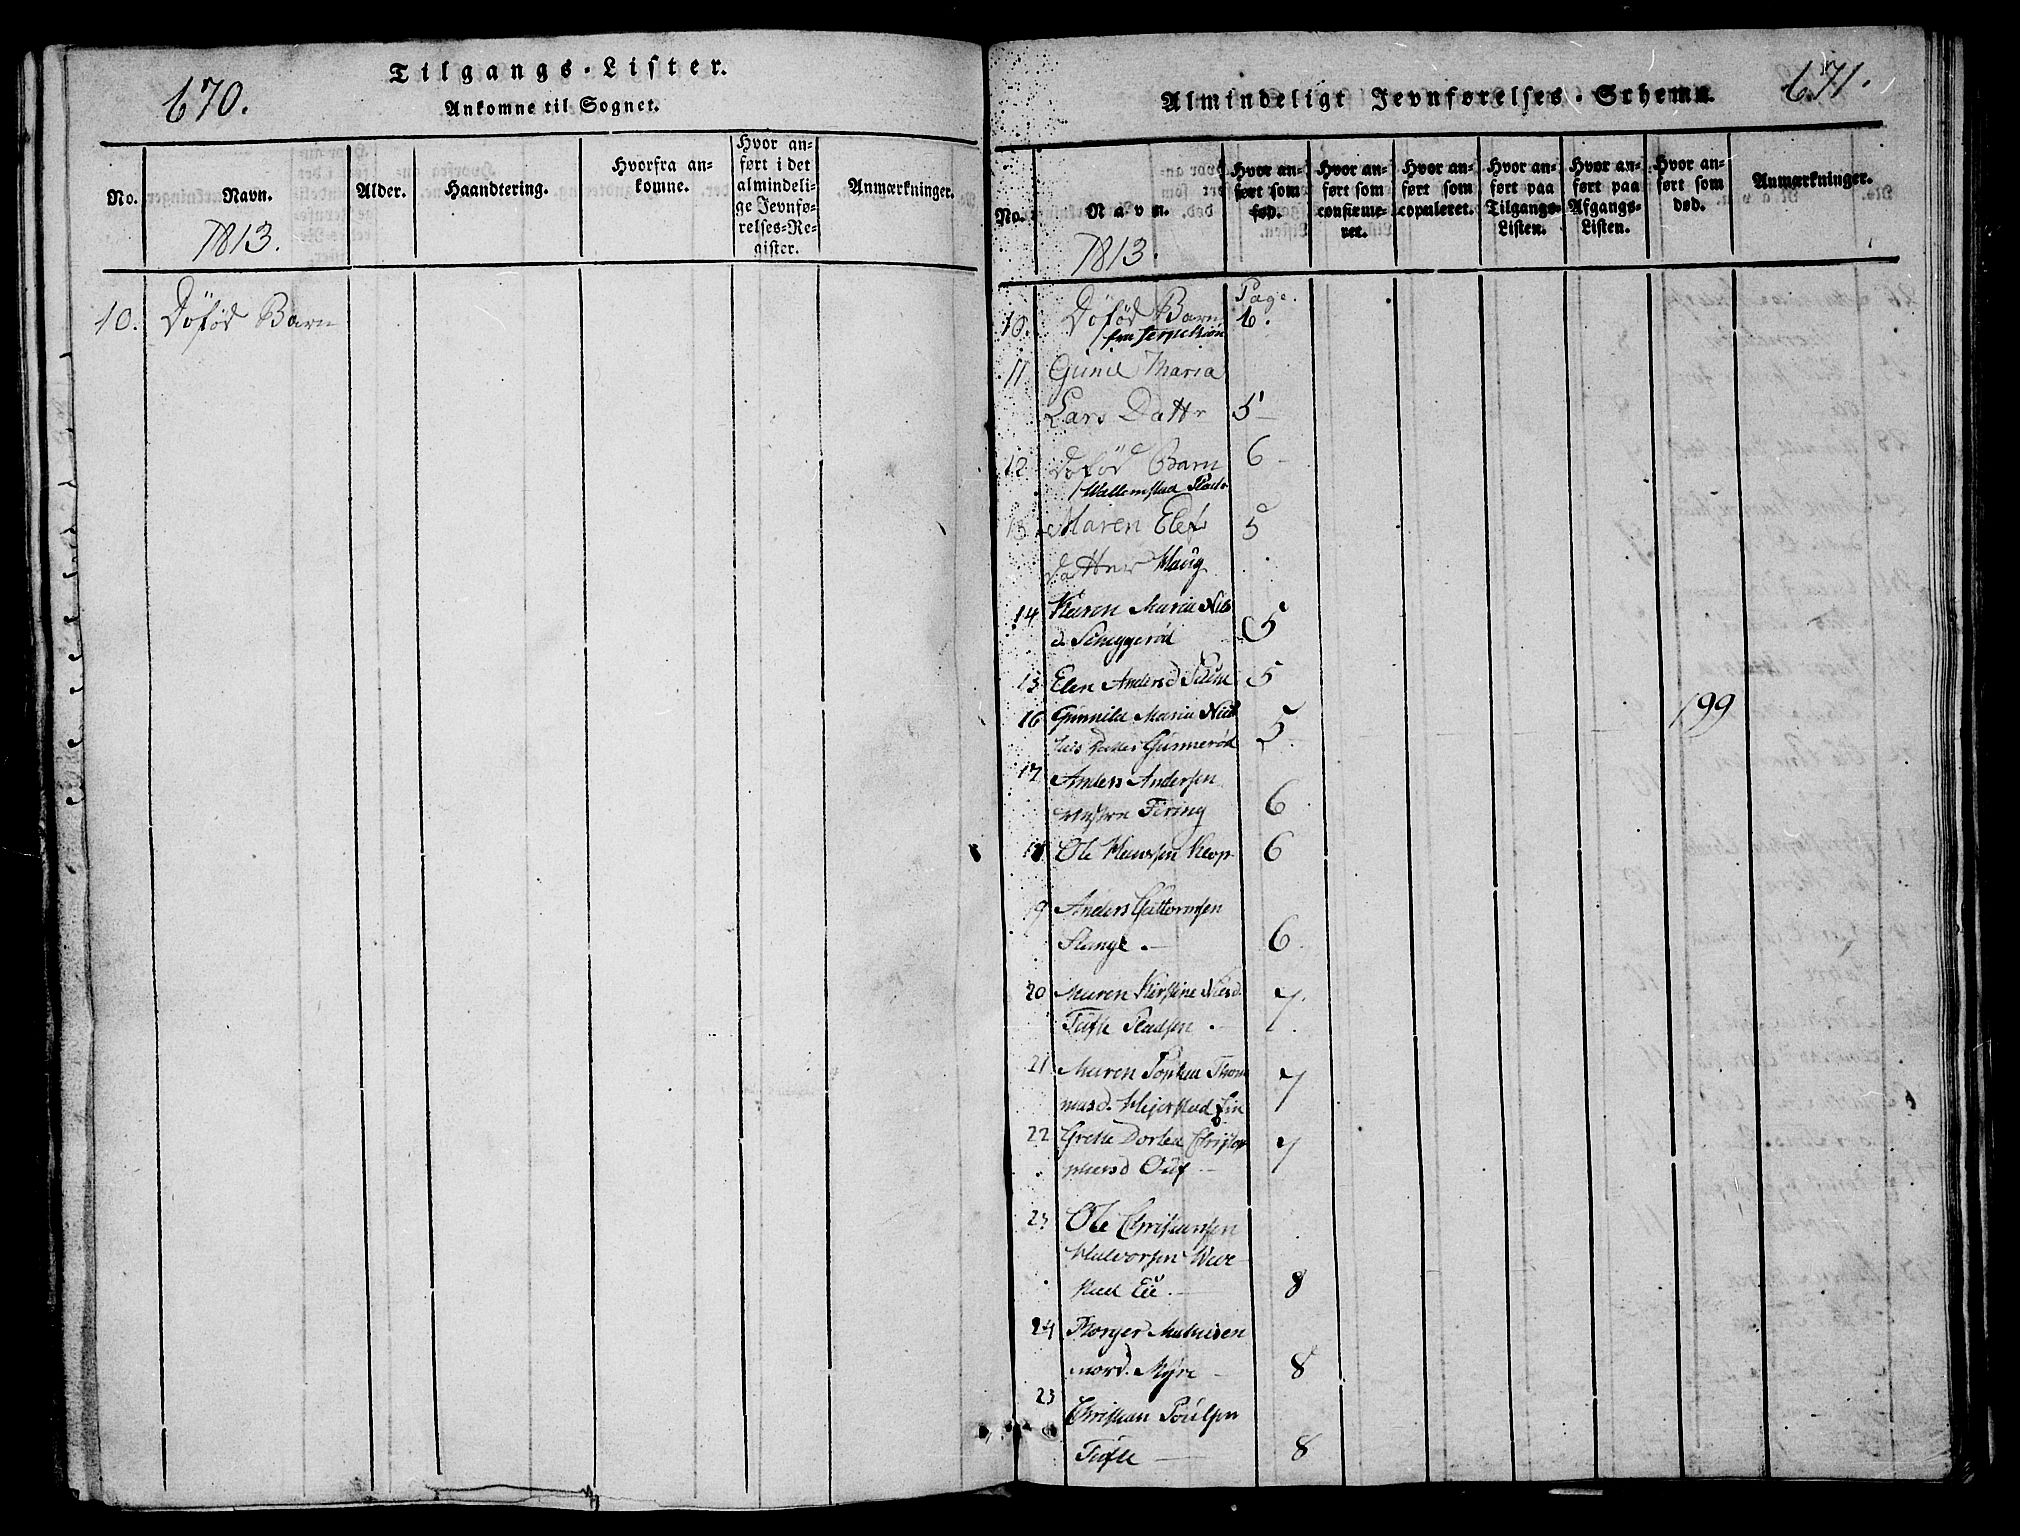 670.
Tilgangs-Lister.
Ankomne til Sognet.
No.
Navn.
1813.
Alder.
Haandtering.
Hvorfra an-
komne.
Hvor an-
ført i det
almindeli-
ge Jevnfø-
relses-Re-
gister.
Anmærkninger.
10. Döföd Barn
671.
Almindeligt Jevnførelses-Schema.
No.
Navn.
1813.
Hvor an-
ført som
fød.
Hvor an-
ført som
confirme-
ret.
Hvor an-
ført som
copuleret.
Hvor an-
ført paa
Tilgangs-
Listen.
Hvor an-
ført paa
Afgangs-
Listen.
Hvor an-
ført som
død.
Anmærkninger.
Page.
10. Döföd Barn 6.
11 Gunil Maria
Lars Dattr 5
12 Döföd Barn 6
13 Maren Elef 5
datter Haug
14 Karen Maria Niels
d. 5
15 Elen Andersd 5
16 Gunnild Maria Niel 199
Datter Gunnerød 5
17 Anders Andersen
Firing 6
18 Ole Hansen Klop 6
19 Anders Guttormsen
Stange. 6
20 Maren Kirstine Nielsd. 7.
Tufte Pladsen.
21 Maren Sophia Thom 7
masd.
22 Grethe Dorthea Christop 7
phersd
23 Ole Christiansen
Halvorsen
Eie. 8
24 Mathisen
Myre 8
25 Christian Poulsen
Tufte 8